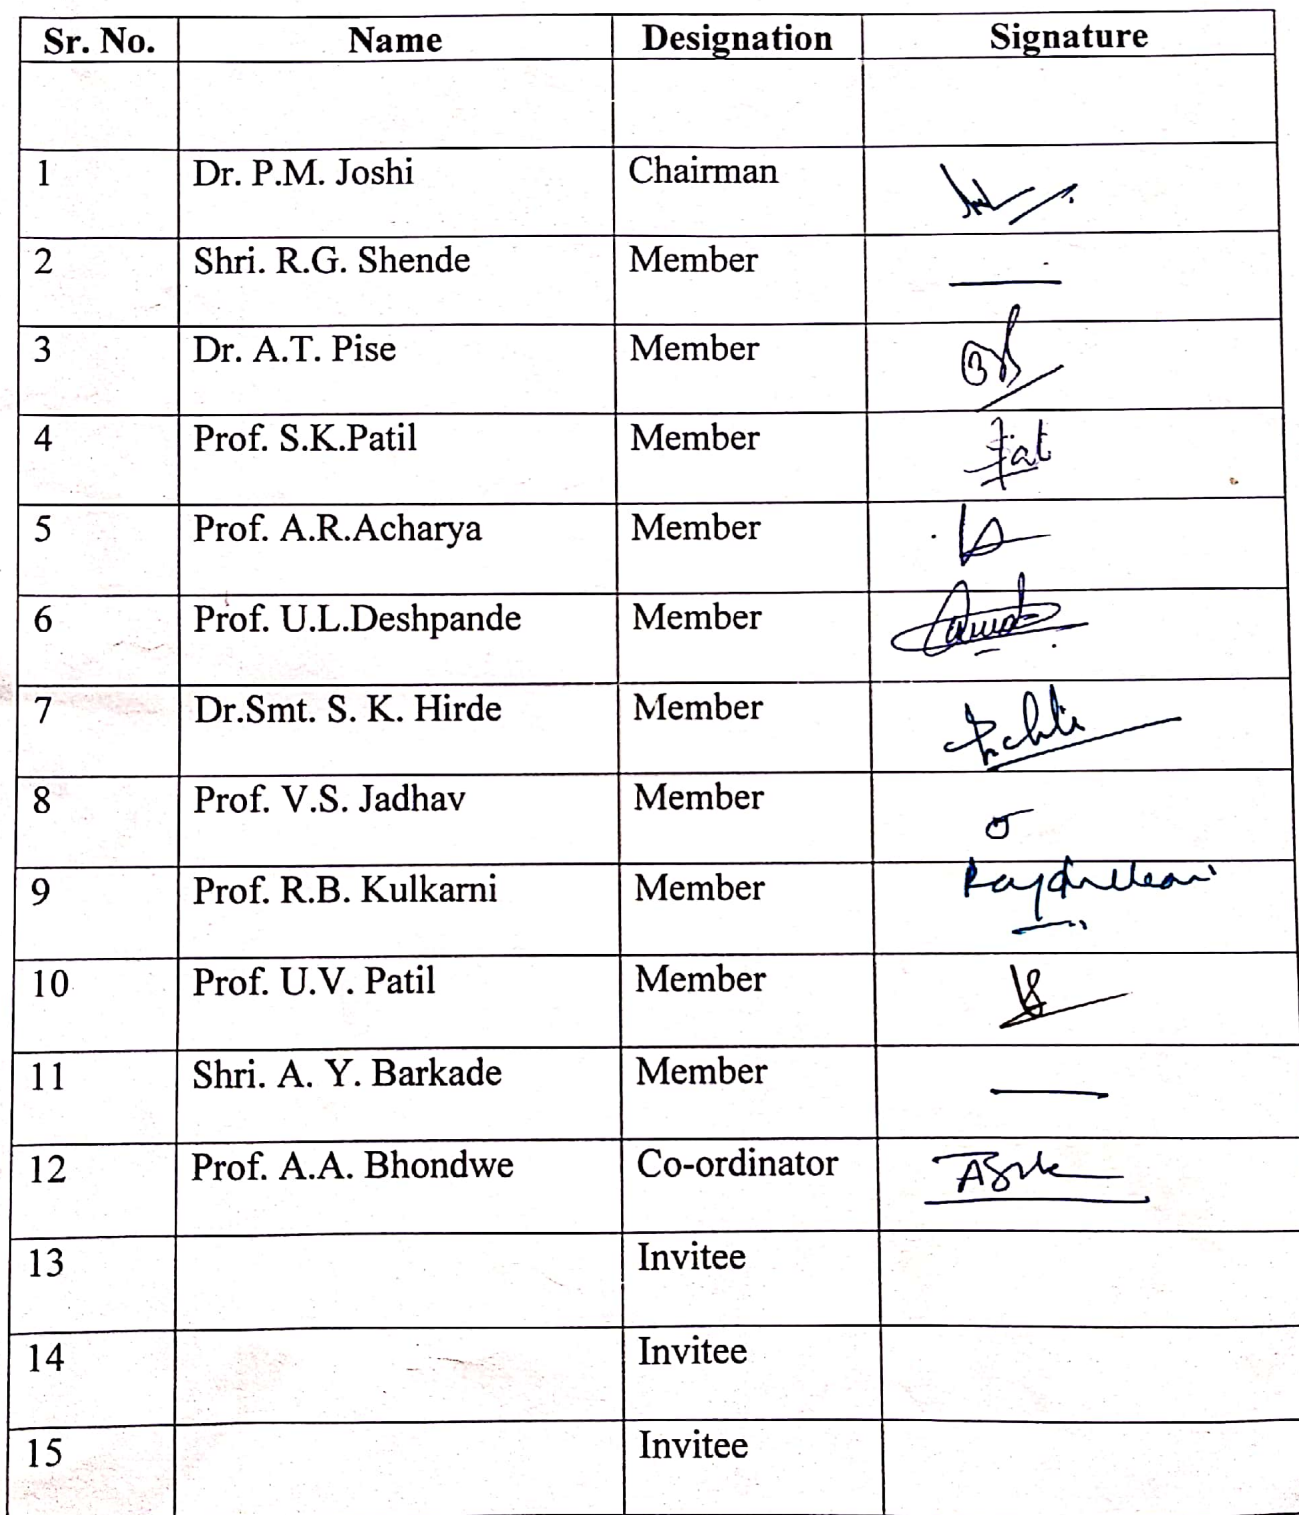 Sr. No. Name Designation Signature
1 Dr. P.M. Joshi Chairman
2 Shri. R.G. Shende Member
3 Dr. A.T. Pise Member
4 Prof. S.K.Patil Member
5 Prof. A.R.Acharya Member
6 Prof. U.L.Deshpande Member
7 Dr.Smt. S. K. Hirde Member
8 Prof. V.S. Jadhav Member
9 Prof. R.B. Kulkarni Member
10 Prof. U.V. Patil Member
11 Shri. A. Y. Barkade Member
12 Prof. A.A. Bhondwe Co-ordinator
13 Invitee
14 Invitee
15 Invitee